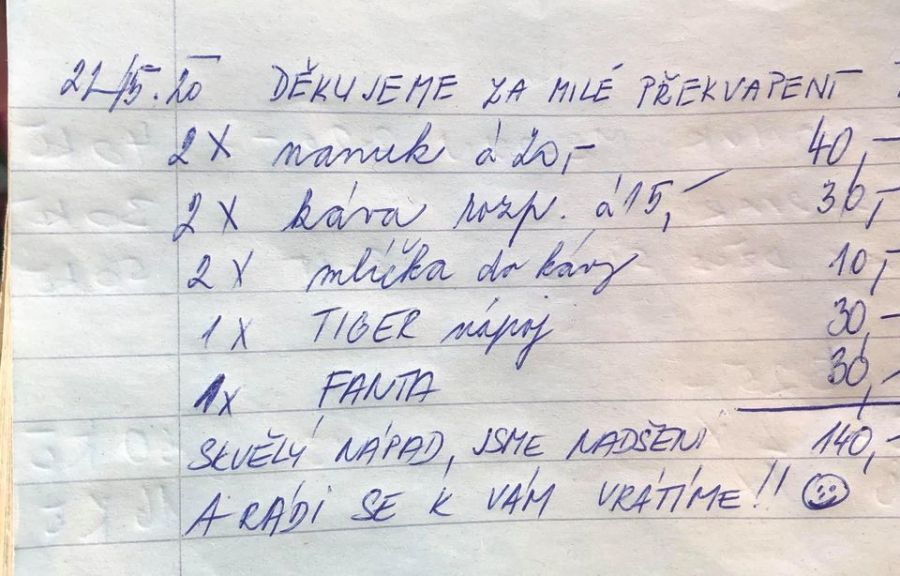 21/5.20 DĚKUJEME ZA MILÉ PŘEKVAPENÍ
2X nanuk á 20,- 40,-
2X káva rozp. á 15,- 30,-
2X mlíčka do kávy 10,-
1X TIGER nápoj 30,-
1X FANTA 30,-
SKVĚLÝ NÁPAD, JSME NADŠENI 140,-
A RÁDI SE K VÁM VRÁTÍME!! ☺